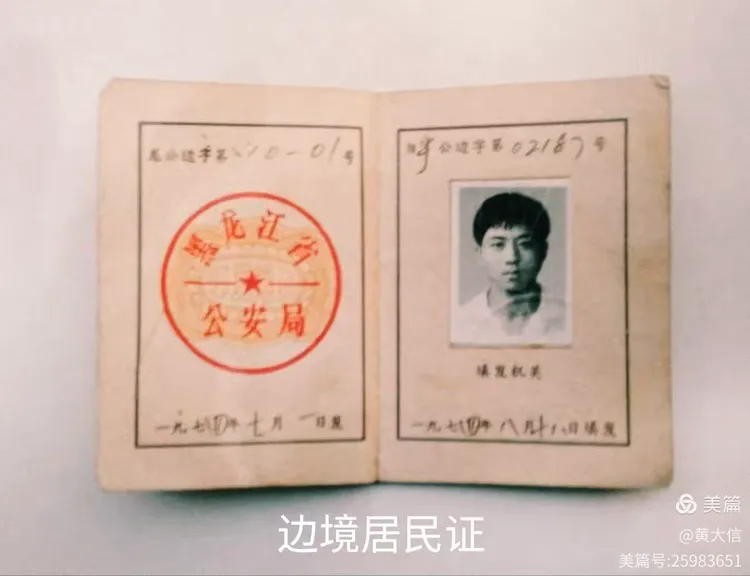 龙公边字第 10-01号
黑龙江省
公安局
一九七四年七月一日发
公边字第02187号
填发机关
一九七四年八月十八日填发
边境居民证
美篇
@黄大信
美篇号:25983651